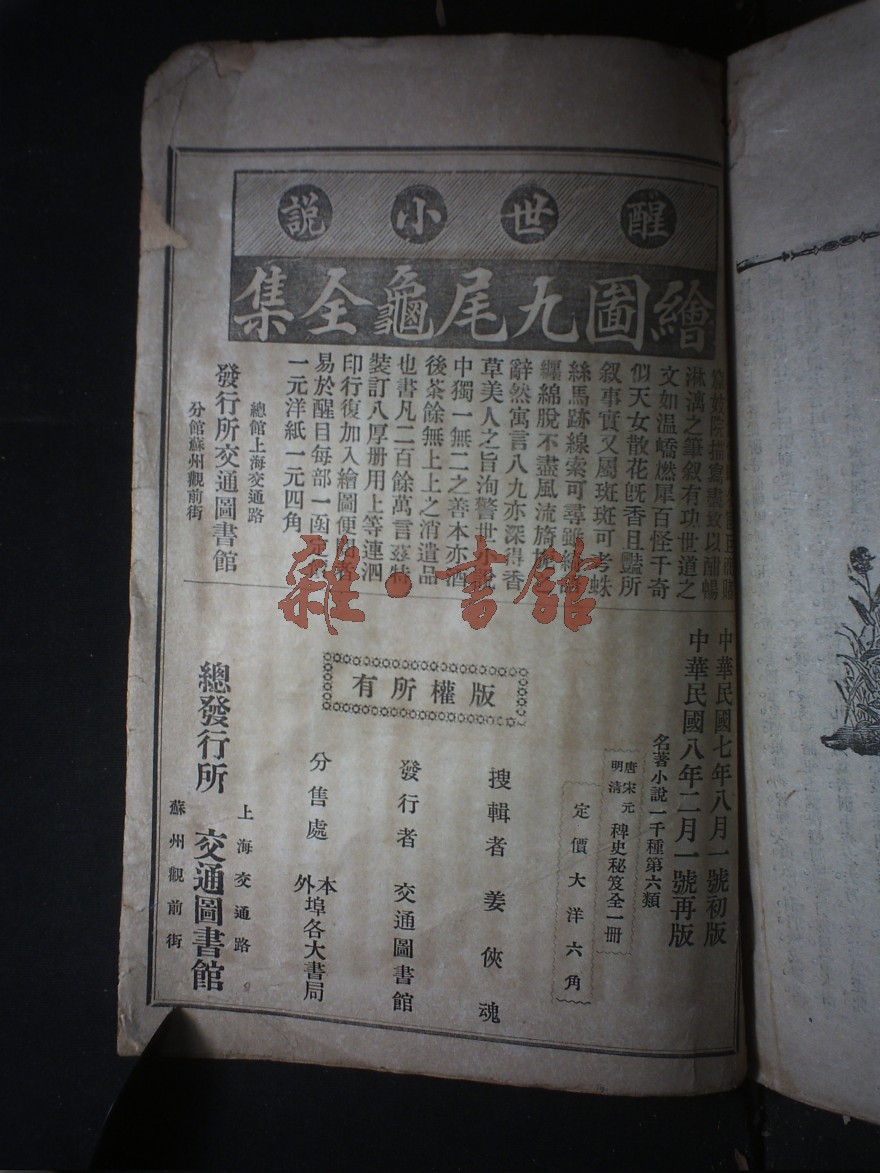 醒世小說
繪圖九尾龜全集
為妓院描寫盡致以酣暢
淋漓之筆叙有功世道之
文如溫嶠燃犀百怪千奇
似天女散花旣香且豔所
叙事實又屬斑斑可考蛛
絲馬跡線索可尋雖
纏綿脫不盡風流旖旎
辭然寓言八九亦深得香
草美人之旨洵警世小說
中獨一無二之善本亦酒
後茶餘無上上之消遺品
也書凡二百餘萬言茲特
裝訂八厚册用上等連泗
印行復加入繪圖便閱者
易於醒目每部一函定價
一元洋紙一元四角
總館上海交通路
發行所交通圖書館
分館蘇州觀前街
中華民國七年八月一號初版
中華民國八年二月一號再版
名著小說一千種第六類
唐宋元
明清
稗史秘笈全一冊
定價大洋六角
版權所有
搜輯者 姜俠魂
發行者 交通圖書館
分售處 本外埠各大書局
上海交通路
總發行所 交通圖書館
蘇州觀前街
雜·書館